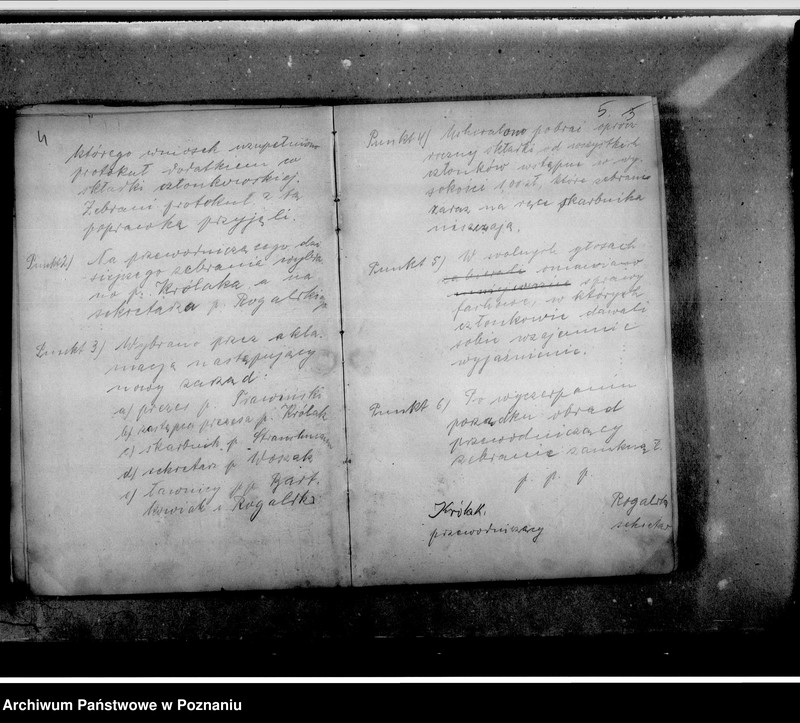 4
którego wniosek uzupełniono
protokuł dodatkiem co
składki członkowskiej.
Zebrani protokuł z tą
poprawką przyjęli.
Punkt 2) Na przewodniczącego dzi
siejszego zebranie wybra
no p. Królaka a na
sekretarza p. Rogalskiego
Punkt 3) Wybrano przez akla-
macją następujący
nowy zarząd:
a) prezes p. Prawiński
b) zastępca prezesa p. Królak
c) skarbnik p.
d) sekretarz p. Woszak
e) ławnicy p.p. Bart-
kowiak i Rogalski
5. 5
Punkt 4) Uchwalono pobrać oprócz
roczny składki od wszystkich
członków wstępne w wy-
sokości 1 oszł, które zebrano
zaraz na ręce skarbnika
niszczają.
Punkt 5) W wolnych głosach
zabierali omawiano
sprawy
fachowe, w których
członkowie dawali
sobie wzajemnie
wyjaśnienie.
Punkt 6) Po wyczerpaniu
porządku obrad
przewodniczący
zebranie zamknął.
p. p. p.
Królak.
przewodniczący
Rogalski
sekretarz
Archiwum Państwowe w Poznaniu